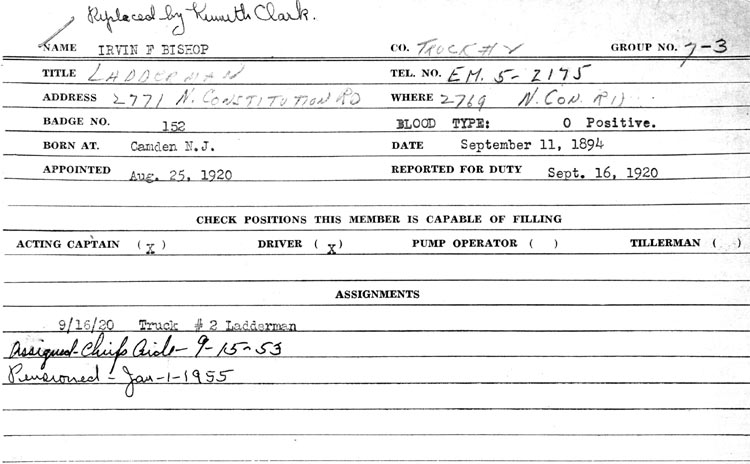 Replaced by Kenneth Clark.
NAME IRVIN F BISHOP CO. TRUCK #2 GROUP NO. 7-3
TITLE LADDERMAN TEL. NO. EM. 5-2175
ADDRESS 2771 N. CONSTITUTION RD WHERE 2769 N. CON. RD
BADGE NO. 152 BLOOD TYPE: O Positive.
BORN AT. Camden N.J. DATE September 11, 1894
APPOINTED Aug. 25, 1920 REPORTED FOR DUTY Sept. 16, 1920
CHECK POSITIONS THIS MEMBER IS CAPABLE OF FILLING
ACTING CAPTAIN (X) DRIVER (X) PUMP OPERATOR ( ) TILLERMAN ( )
ASSIGNMENTS
9/16/20 Truck # 2 Ladderman
Assigned Chiefs Aide - 9-15-53
Pensioned - Jan-1-1955